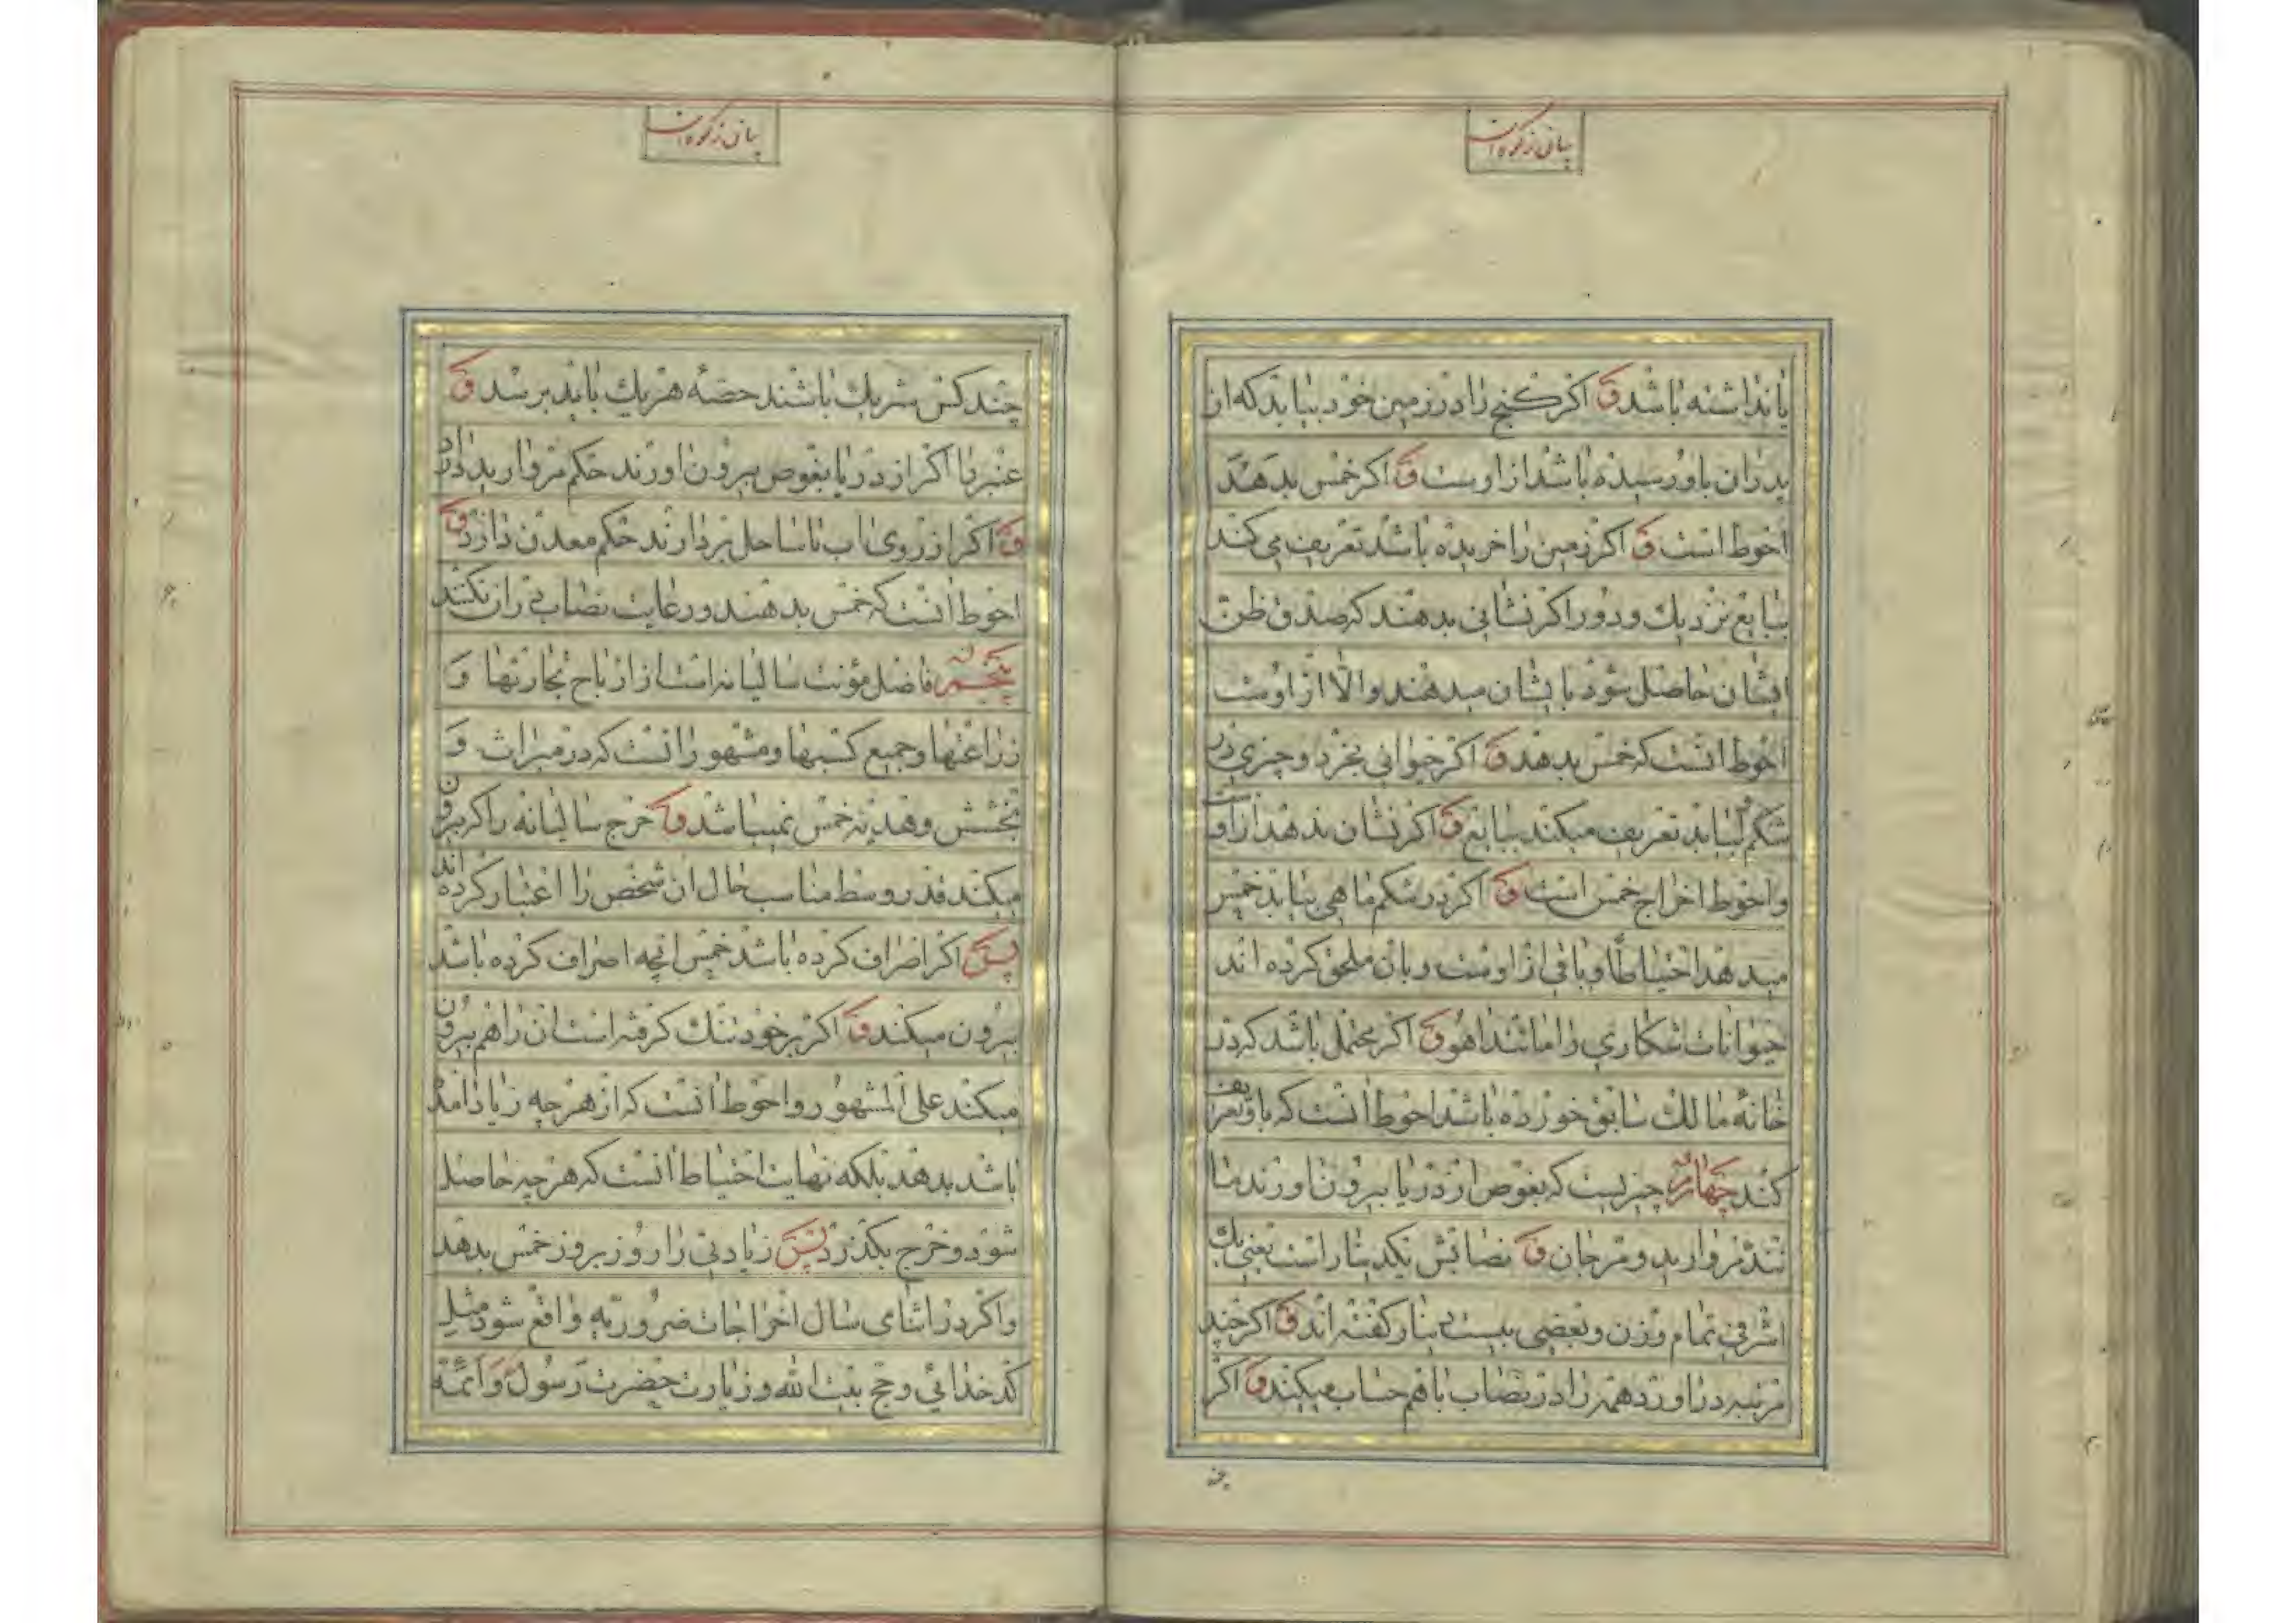 بیان زکوة
یا نداشته باشد ق اکر کنج را در زمین خود بیابد که از
پدران باو رسیده باشد از اوست ق اکر خمس بدهد
احوط است ق اکر زمین را خریده باشد تعریف می کند
ببایع نزدیک و دور اکر نشانی بدهند که صدق ظن
ایشان حاصل شود بایشان میدهند والا از اوست
احوط انست که خمس بدهد ق اکر حیوانی بخرد و چیزی در
شکمش بیابد تعریف میکند ببایع ق اکر نشان ندهد از اوست
واحوط اخراج خمس است ق اکر در شکم ماهی بیابد خمس
میدهد احتیاطا و باقی از اوست و بان ملحق کرده اند
حیوانات شکاری را مانند اهو ق اکر محتمل باشد که در
خانهٔ مالک سابق خورده باشد احوط انست که باو تعریف
کند چهارم چیزیست که بغوص از دریا بیرون اورند ما
نند مروارید و مرجان ق نصابش یکدینار است یعنی یک
اشرفی تمام وزن و بعضی بیست دینار کفته اند ق اکر چند
مرتبه دراورد همه را در نصاب با هم حساب میکند ق اکر
چند
بیان زکوة
چند کس شریک باشند حصهٔ هر یک باید برسد ق
عنبر با اکر از دریا بغوص بیرون اورند حکم مروارید دارد
ق اکر از روی اب یا ساحل بردارند حکم معدن دارد ق
احوط انست که خمس بدهند و رعایت نصاب دران نکنند
پنجم فاضل مؤنت سالیانه است از ارباح تجارتها و
زراعتها و جمیع کسبها و مشهور انست که در میراث و
بخشش و هدیه خمس نمیباشد ق خرج سالیانه را که بیرون
میکند قدر وسط مناسب حال ان شخص را اعتبار کرده اند
پس اکر اصراف کرده باشد خمس انچه اصراف کرده باشد
بیرون میکند ق اکر بر خود تنک کرفته است ان را هم بیرون
میکند علی المشهور و احوط انست که از هر چه زیاد امده
باشد بدهد بلکه نهایت احتیاط انست که هر چه حاصل
شود و خرج بکذرد پس زیادتی را روز بروز خمس بدهد
واکر در اثنای سال اخراجات ضروریه واقع شود مثل
کدخدائی و حج بیت الله و زیارت حضرت رسول و ائمّه